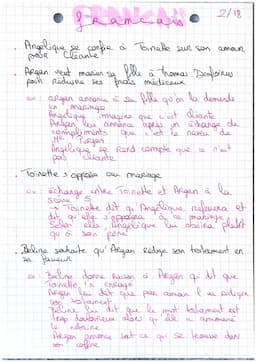 français
2/18
. Angélique se confie à Toinette sur son amour
pour Cléante
Argan veut marier sa fille à Thomas Diafoirus
pour réduire ses frais médicaux
ex: argan annonce à sa fille qu'on la demande
en mariage
Angélique imagine que c'est Cléante
Argan lui annonce après un échange de
compliments que c'est le neveu de
Mr Purgon
Angélique se rend compte que ce n'est
pas Cléante
. Toinette s'oppose au mariage
ex: échange entre Toinette et Argan à la
scène 5
Toinette dit qu'Angélique refusera et
dit qu'elle s'opposera à ce mariage
Selon elle Angélique lui obéira plutôt
qu'à son père
Béline souhaite qu'Argan rédige son testament en
sa faveur
ex: Béline donne raison à Argan qui dit que
Toinette l'a enragé
Argan lui dit que par amour il va rédiger
son testament
Béline lui dit que le mot testament est
trop douloureux alors qu'elle a amené
le notaire
Argan annonce tout ce qui se trouve dans
son coffre